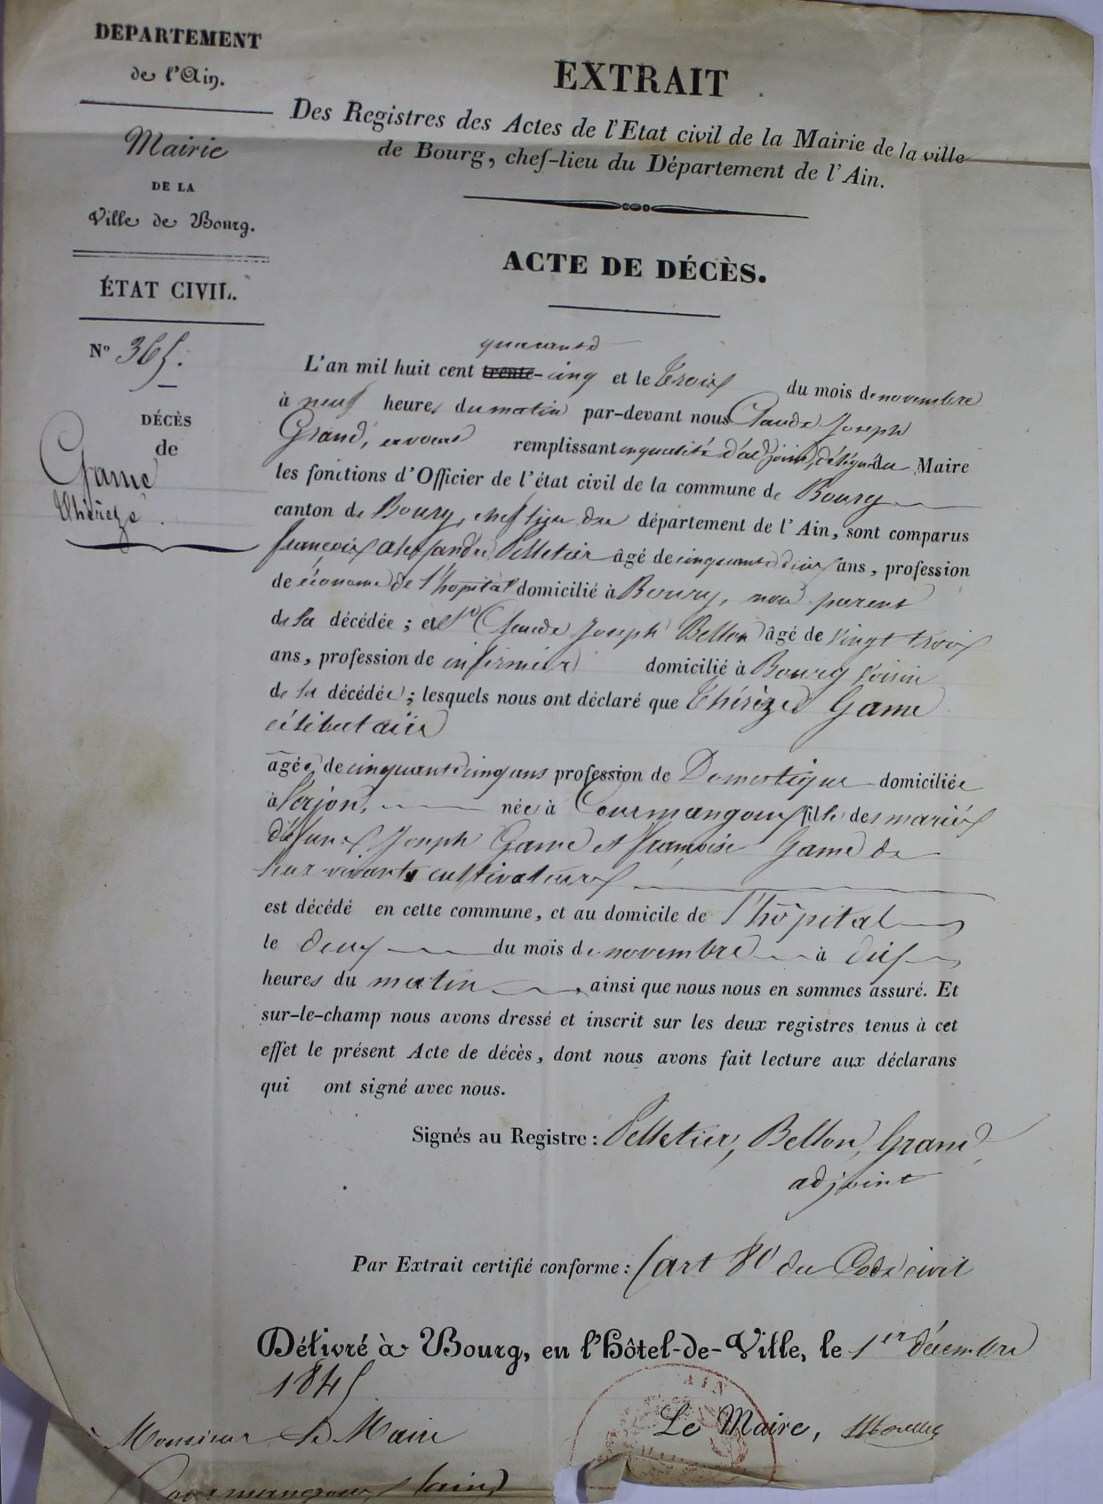 DEPARTEMENT
de l'Ain.
Mairie
DE LA
Ville de Bourg.
ÉTAT CIVIL.
N° 365.
DÉCÈS
de
Game
Thérèze
EXTRAIT
Des Registres des Actes de l'Etat civil de la Mairie de la ville
de Bourg, chef-lieu du Département de l'Ain.
ACTE DE DÉCÈS.
quarante
L'an mil huit cent trente-cinq et le trois du mois de novembre
à neuf heures du matin par-devant nous Claude Joseph
Grand, avoué remplissant en qualité d'adjoint, délégué du Maire
les fonctions d'Officier de l'état civil de la commune de Bourg
canton de Bourg, chef lieu du département de l'Ain, sont comparus
françois alexandre Pelletier âgé de cinquante deux ans, profession
de économe de l'hopital domicilié à Bourg, non parent
de la décédée; et Sr Claude Joseph Bellon âgé de vingt trois
ans, profession de infirmier domicilié à Bourg voisin
de la décédée; lesquels nous ont déclaré que thérèze Game
célibataire
âgée de cinquante cinq ans profession de Domestique domiciliée
à Serjon, née à Courmangoux fille des mariés
défunts Joseph Game et françoise Game de
leur vivant cultivateurs
est décédé en cette commune, et au domicile de l'hôpital
le deux du mois de novembre à dix
heures du matin, ainsi que nous nous en sommes assuré. Et
sur-le-champ nous avons dressé et inscrit sur les deux registres tenus à cet
effet le présent Acte de décès, dont nous avons fait lecture aux déclarans
qui ont signé avec nous.
Signés au Registre: Pelletier, Bellon, Grand
adjoint
Par Extrait certifié conforme: (art 80 du Code civil
Délivré à Bourg, en l'Hôtel-de-Ville, le 1er décembre
1845
AIN
Le Maire,
Monsieur le Maire
Courmangoux (ain)